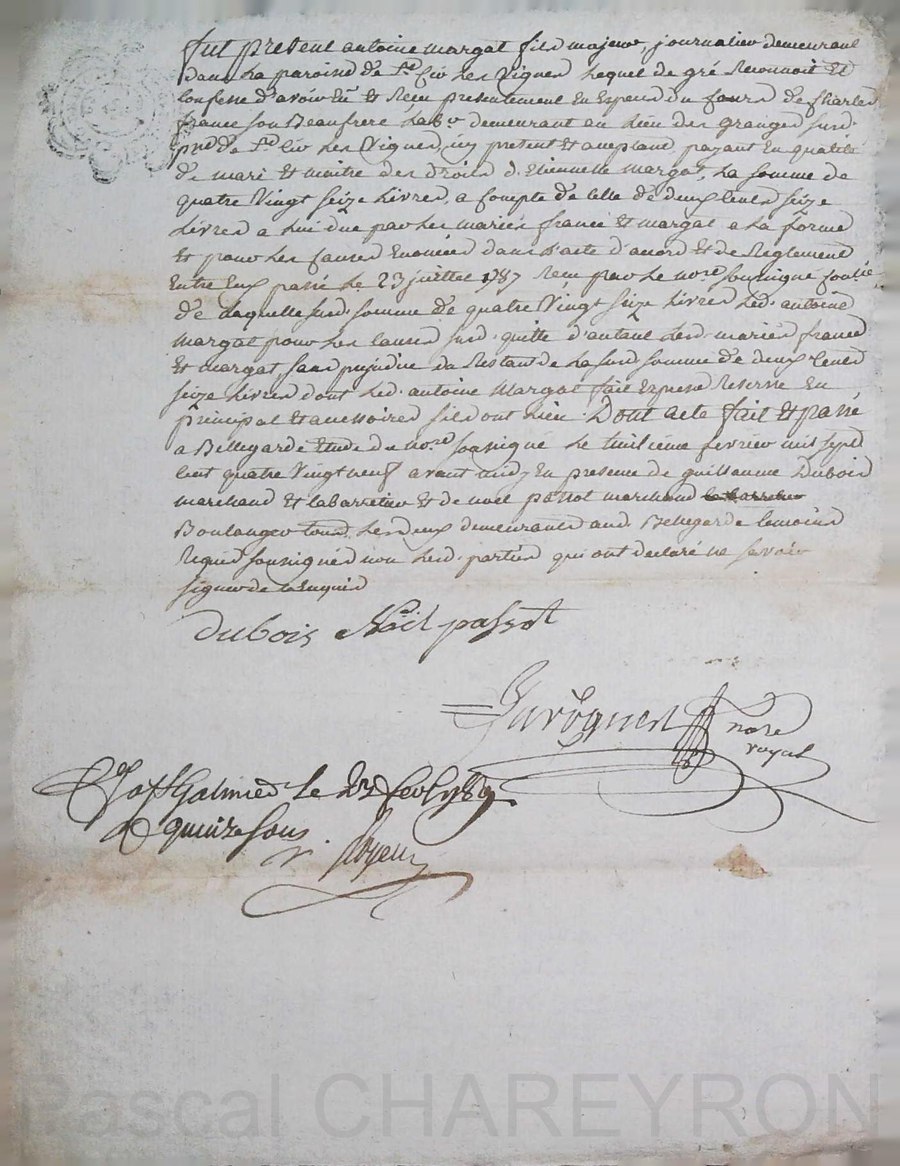 fut present antoine margat fils majeur, journalier demeurant
dans la paroisse de St Cir les Vignes lequel de gré reconnoit et
confesse d'avoir eu et recu presentement en especes du fours de Charles
france son Beaufrere labr demeurant au lieu des granges surd.
psse de St Cir les Vignes, icy present et acceptant payant en qualité
de mari et maitre des droits d'Etiennette margat, la somme de
quatre Vingt seize livres, a compte de celle de deux Cents seize
livres a lui due par les mariés france et margat a la forme
et pour les causes enoncées dans l'acte d'acord et de Reglement
entre eux passé le 23 juillet 1787 recu par le nore soussigné
de laquelle surd. somme de quatre Vingt seize livres led. antoine
margat pour les causes surd. quitte d'autant lesd. mariés france
et margat, sans prejudice du Restant de la surd somme de deux Cents
seize livres dont led. antoine Margat fait expresse reserve en
principal et accessoires sils ont lieu. Dont acte fait et passé
a Bellegarde etude du nore soussigné le huitieme fevrier mil sept
cent quatre Vingt neuf avant midy en presence de guillaume Dubois
marchand et cabarretier et de noel passot marchand
Boulanger tous les deux demeurants aud. Bellegarde temoins
Requis soussignés non lesd. parties qui ont declaré ne savoir
signer de ce enquis
dubois Noël passot
nore
royal
a St Galmier le 23 fevr 1789
R quinze sous